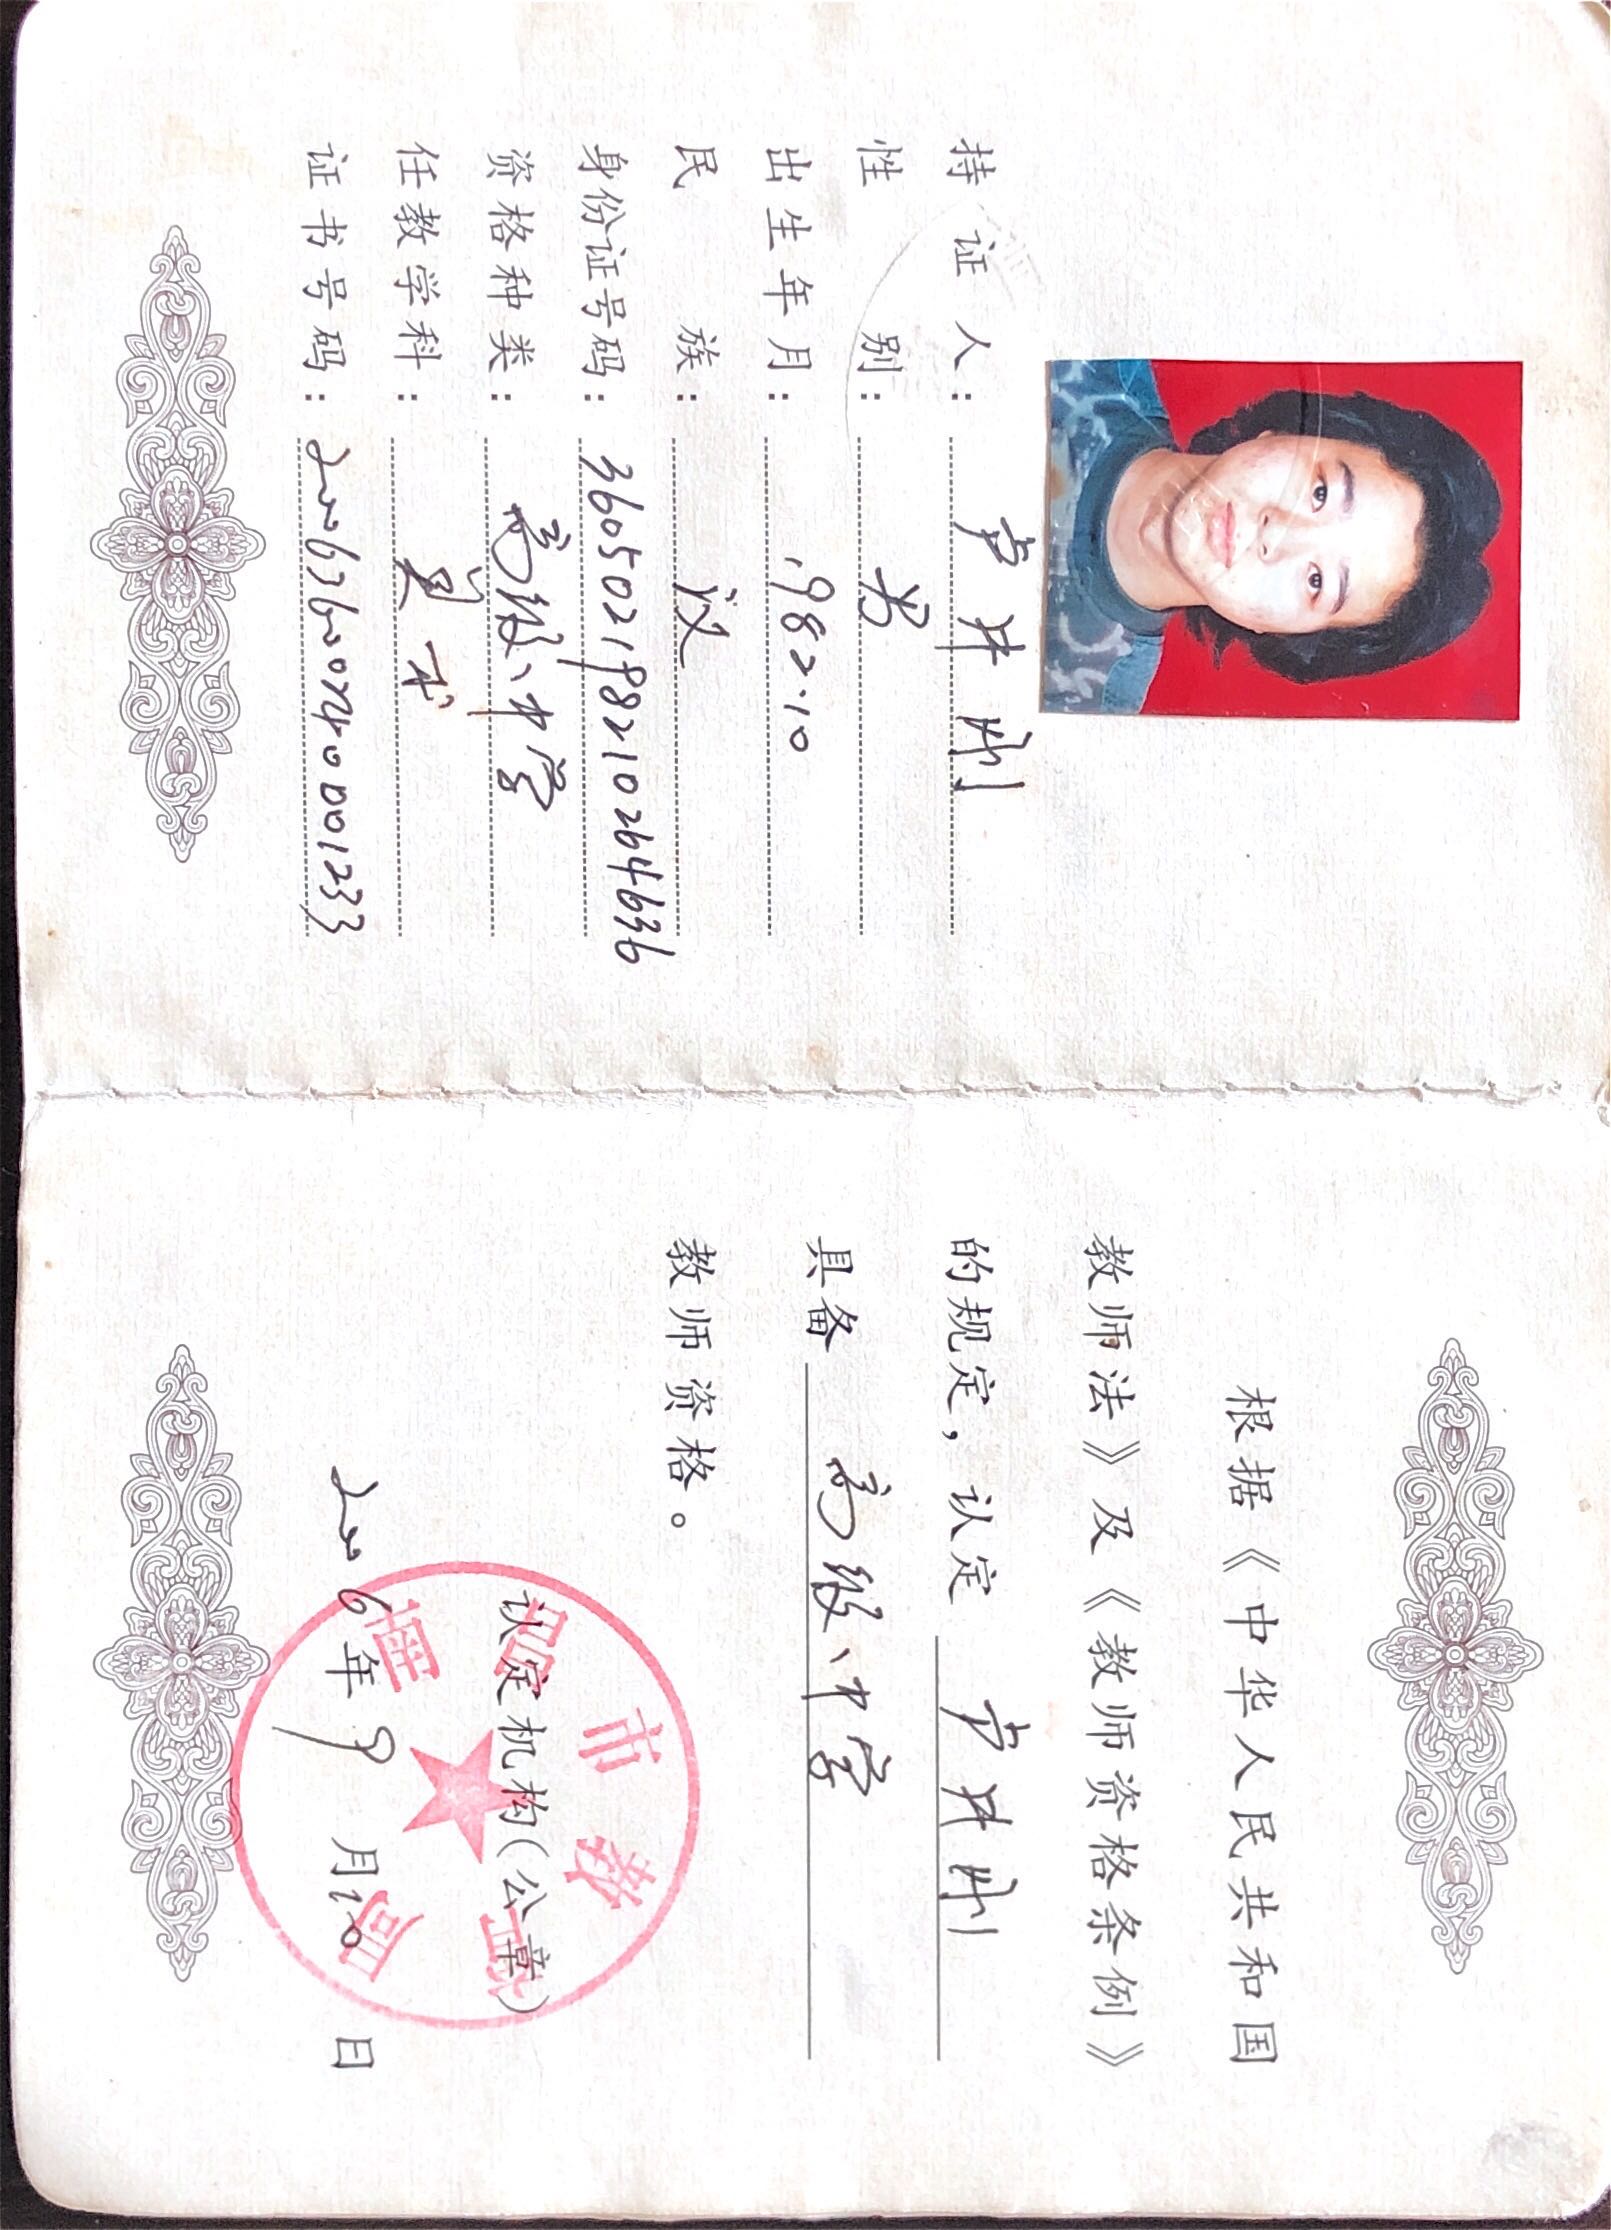 持证人：卢井刚
性别：男
出生年月：1982.10
民族：汉
身份证号码：360502198210264636
资格种类：高级中学
任教学科：美术
证书号码：20063600740001233
根据《中华人民共和国
教师法》及《教师资格条例》
的规定，认定 卢井刚
具备 高级中学
教师资格。
认定机构（公章）
2006年9月20日
市教